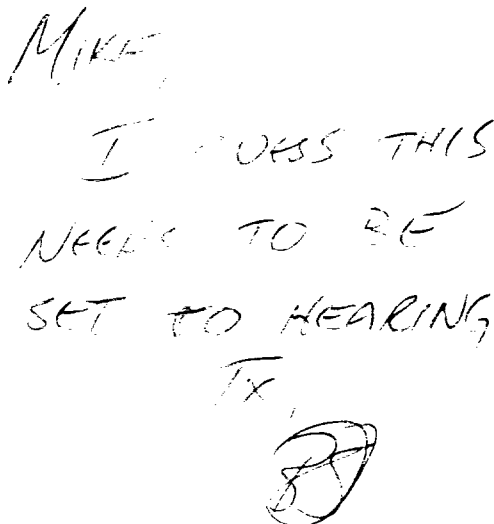 MIKE,
I GUESS THIS
NEEDS TO BE
SET TO HEARING,
TX,